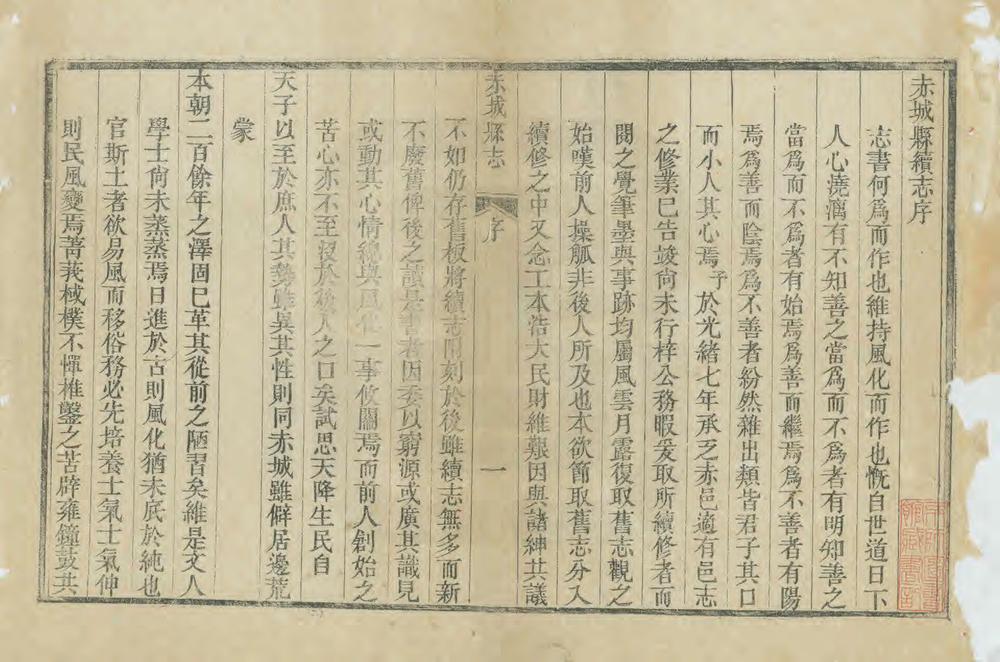 赤城縣續志序
志書何爲而作也維持風化而作也慨自世道日下
人心澆漓有不知善之當爲而不爲者有明知善之
當爲而不爲者有始焉爲善而繼焉爲不善者有陽
焉爲善而陰焉爲不善者紛然雜出類皆君子其口
而小人其心焉予於光緒七年承乏赤邑適有邑志
之修業已告竣尙未行梓公務暇爰取所續修者而
閱之覺筆墨與事跡均屬風雲月露復取舊志觀之
始嘆前人操觚非後人所及也本欲節取舊志分入
續修之中又念工本浩大民財維艱因與諸紳共議
赤城縣志
序
一
不如仍存舊板將續志附刻於後雖續志無多而新
不廢舊俾後之讀是書者因委以窮源或廣其識見
或動其心情總與風化一事攸關焉而前人創始之
苦心亦不至沒於後人之口矣試思天降生民自
天子以至於庶人其勢雖異其性則同赤城雖僻居邊荒
蒙
本朝二百餘年之澤固已革其從前之陋習矣維是文人
學士尙未蒸蒸焉日進於古則風化猶未底於純也
官斯土者欲易風而移俗務必先培養士氣士氣伸
則民風變焉菁莪棫樸不憚椎鑿之苦辟雍鐘鼓共